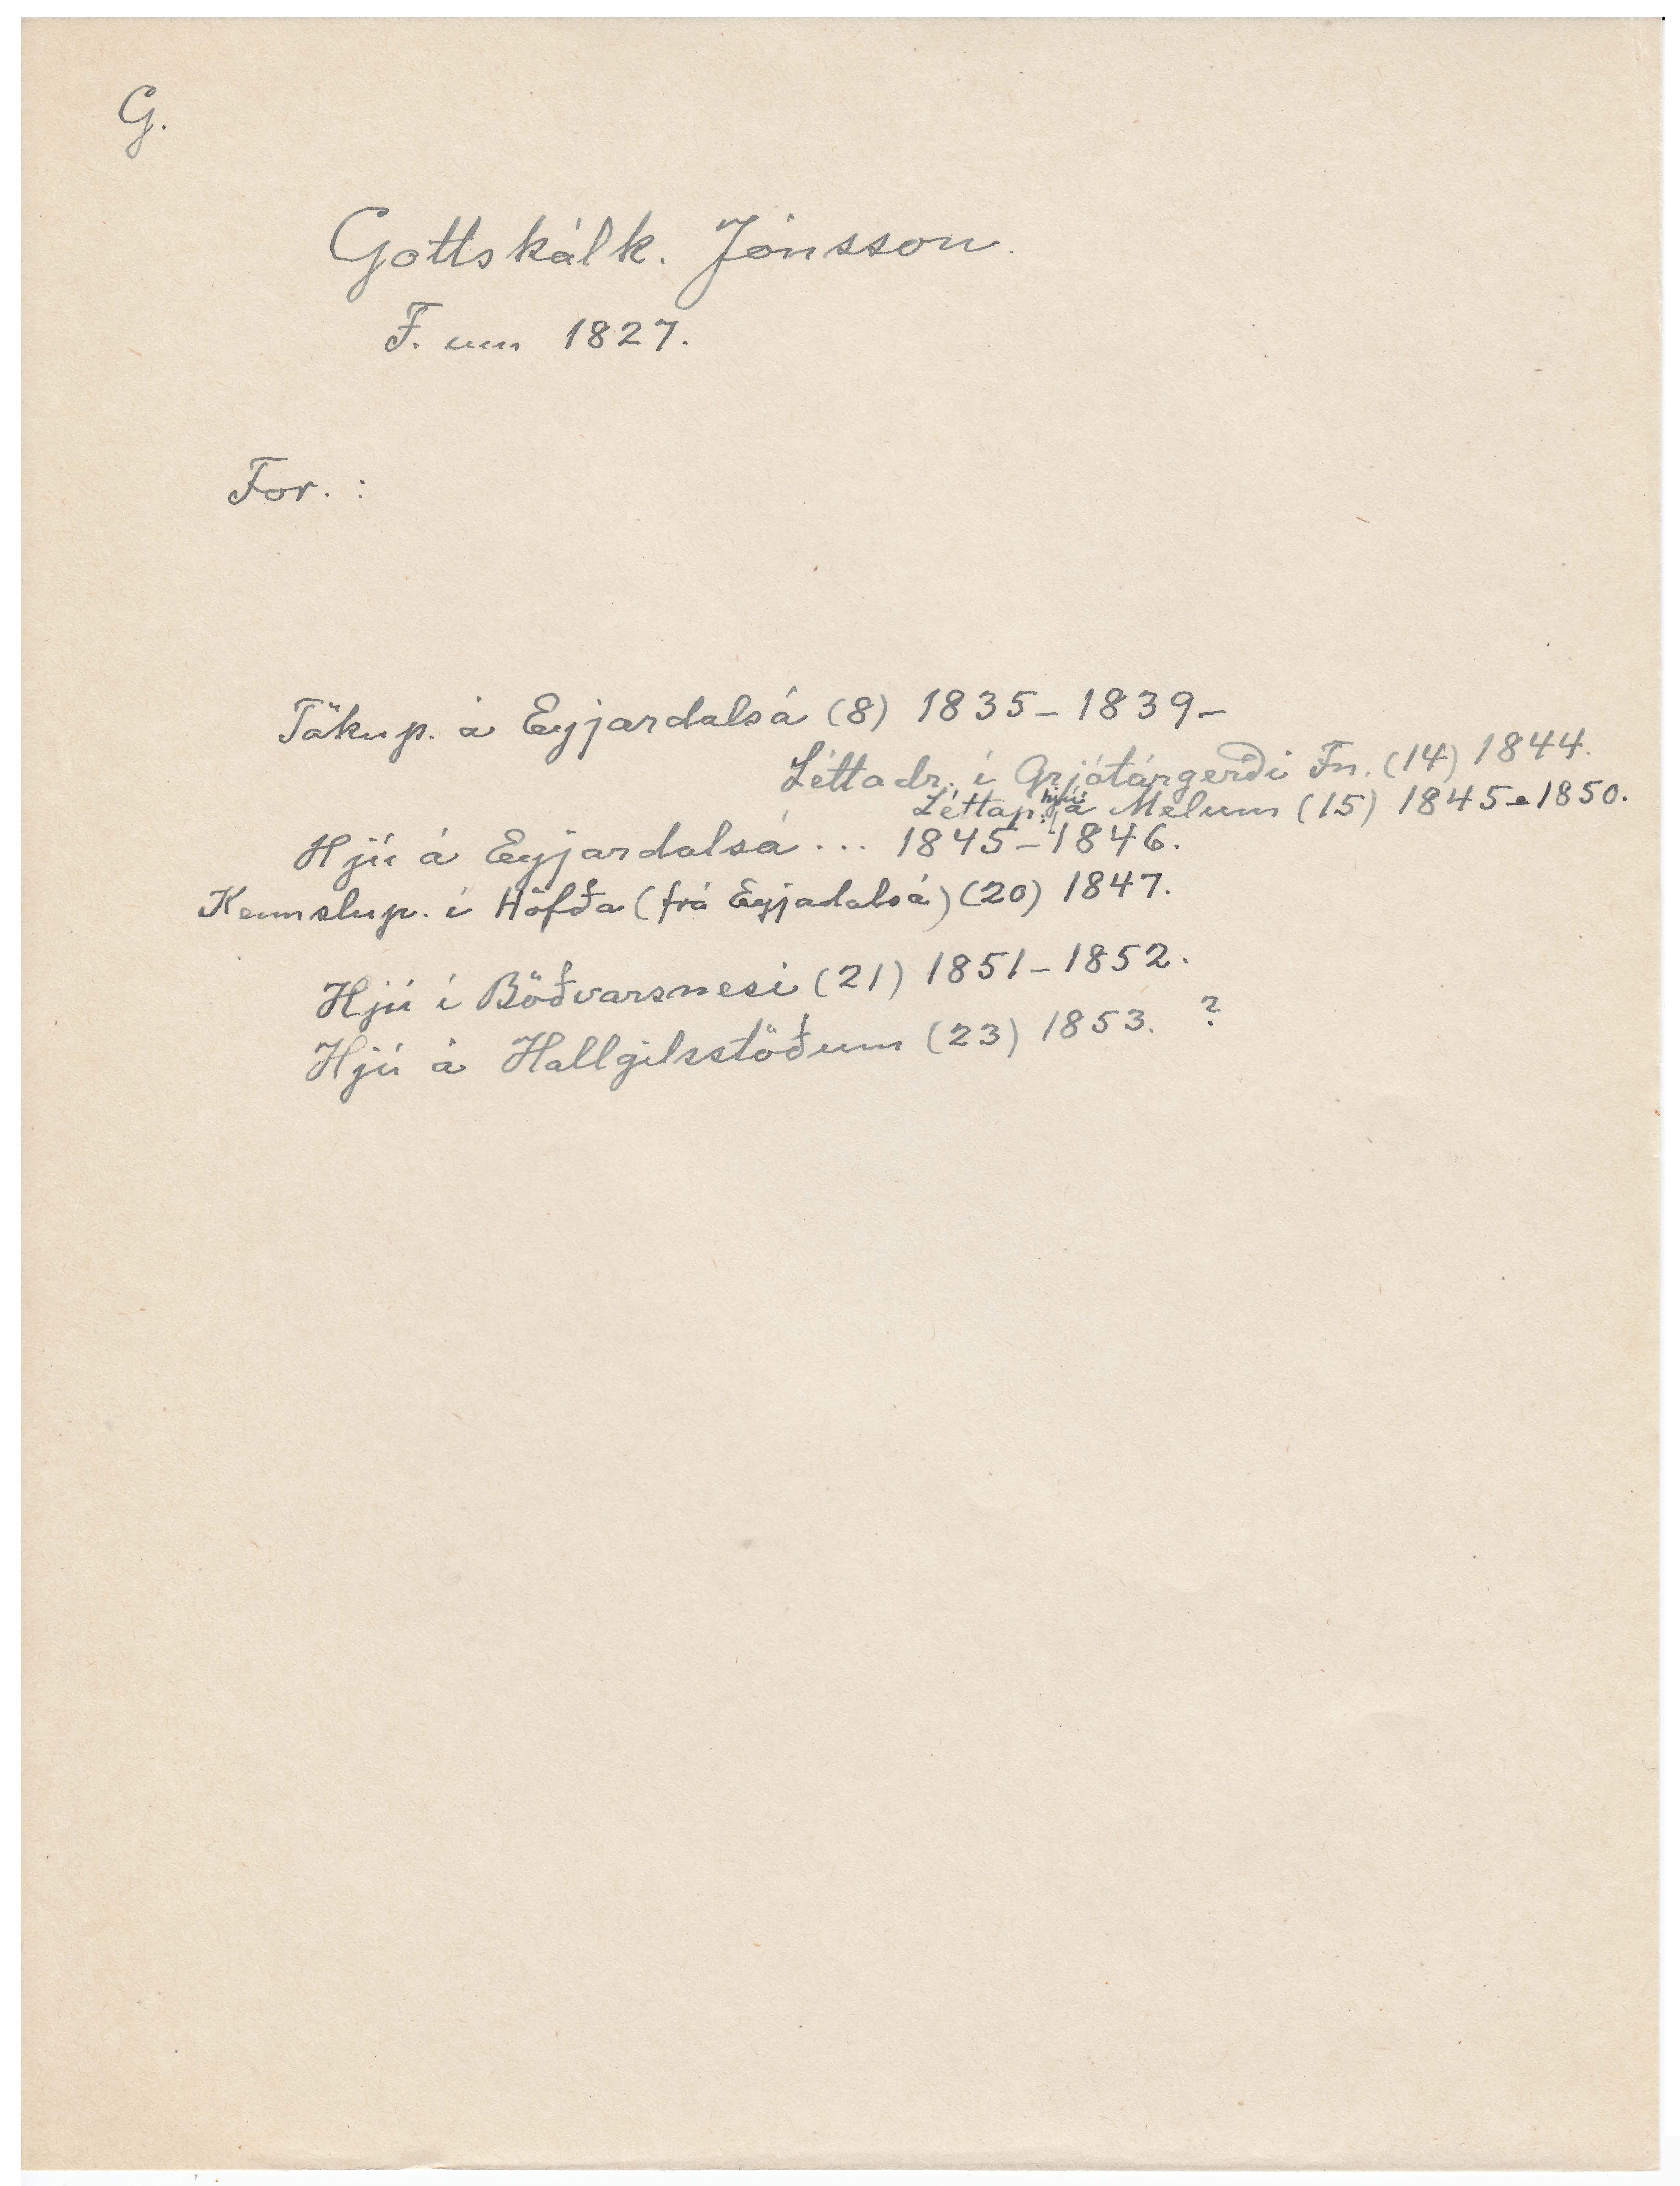 G.
Gottskálk. Jónsson.
F. um 1827.
For. :
Tökup. á Eyjardalsá (8) 1835 - 1839 -
Léttadr. í Grjótárgerði Fn. (14) 1844.
Léttap. hjú á Melum (15) 1845 - 1850.
Hjú á Eyjardalsá ... 1845 - 1846.
Kennslup. í Höfða (frá Eyjadalsá) (20) 1847.
Hjú í Böðvarsnesi (21) 1851 - 1852.
Hjú á Hallgilsstöðum (23) 1853. ?